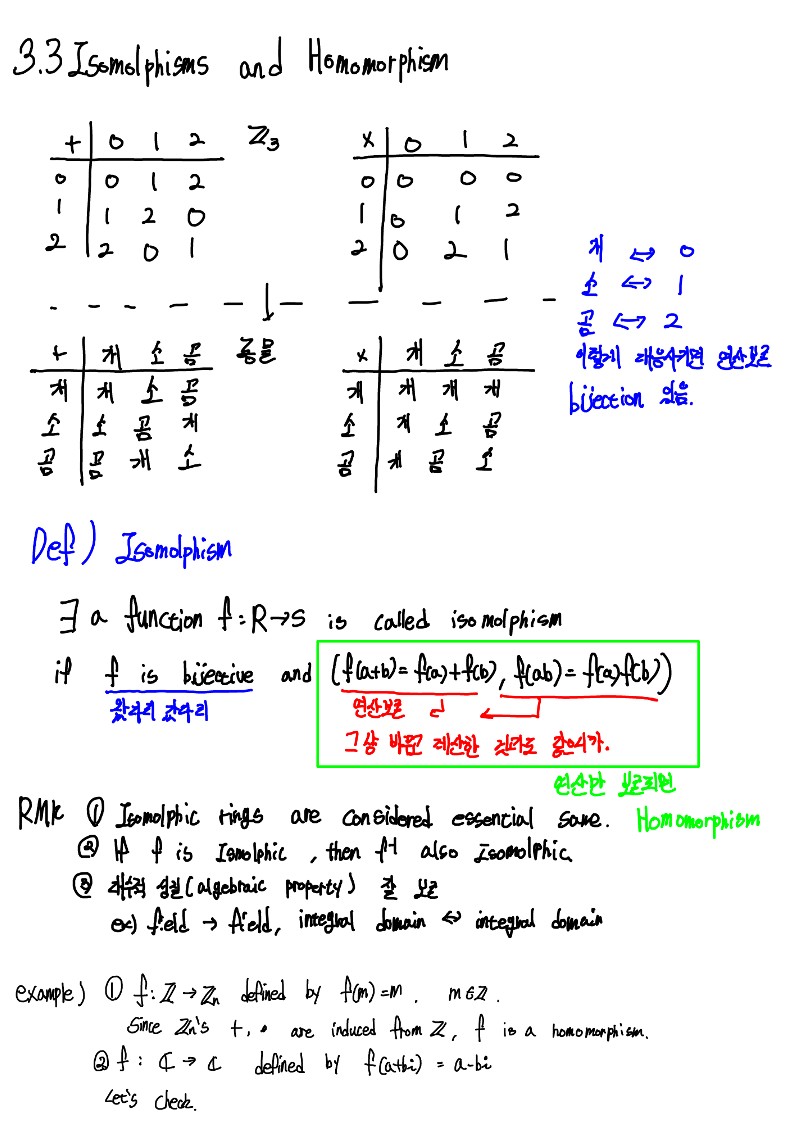 3.3 Isomolphisms and Homomorphism
+ 0 1 2 ℤ₃
0 0 1 2
1 1 2 0
2 2 0 1
× 0 1 2
0 0 0 0
1 0 1 2
2 0 2 1
개 ↔ 0
소 ↔ 1
곰 ↔ 2
이렇게 대응시키면 연산보존
bijection 있음.
+ 개 소 곰 동물
개 개 소 곰
소 소 곰 개
곰 곰 개 소
× 개 소 곰
개 개 개 개
소 개 소 곰
곰 개 곰 소
Def) Isomolphism
∃ a function f: R→S is called isomolphism
if f is bijective and (f(a+b)=f(a)+f(b), f(ab)=f(a)f(b))
왔다리 갔다리
연산보존
그냥 바꾸고 계산한 것과도 같으니가.
연산만 보존되면
Homomorphism
RMK ① Isomolphic rings are considered essential same.
② If f is Ismolphic, then f⁻¹ also Isomolphic.
③ 대수적 성질(algebraic property) 잘 보존
ex) field → field, integral domain ↔ integral domain
example) ① f: ℤ → ℤn defined by f(m)=m. m∈ℤ.
Since ℤn's +, • are induced from ℤ, f is a homomorphism.
② f: ℂ → ℂ defined by f(a+bi) = a-bi
Let's check.